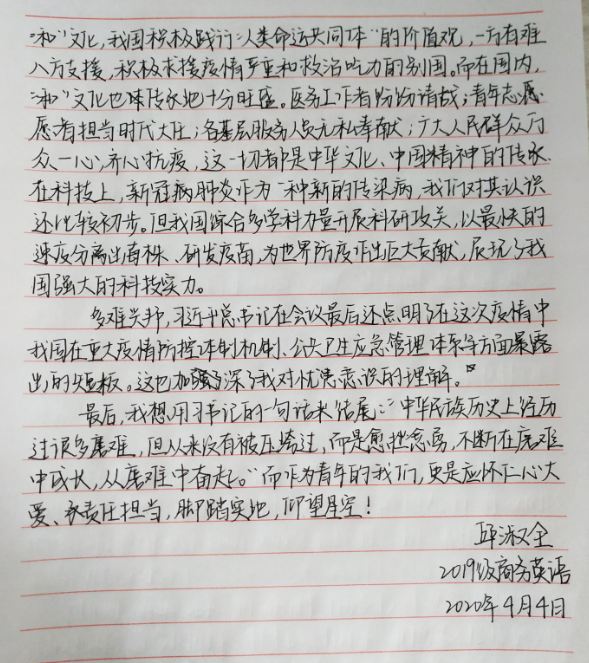 “和”文化，我国积极践行“人类命运共同体”的价值观，一方有难
八方支援，积极支援疫情严重和救治吃力的别国。而在国内，
“和”文化也味传承地十分旺盛。医务工作者纷纷请战；青年志愿
愿者担当时代大任；各基层服务人员无私奉献；广大人民群众万
众一心，齐心抗疫，这一切都是中华文化、中国精神的传承。
在科技上，新冠病肺炎作为一种新的传染病，我们对其认识
还比较初步。但我国综合多学科力量开展科研攻关，以最快的
速度分离出毒株、研发疫苗，为世界防疫作出巨大贡献，展现了我
国强大的科技实力。
多难兴邦，习近平总书记在会议最后还点明了在这次疫情中
我国在重大疫情防控体制机制、公共卫生应急管理体系等方面暴露
出的短板。这也加深了我对忧患意识的理解。
最后，我想用习书记的一句话来结尾：“中华民族历史上经历
过很多磨难，但从来没有被压垮过，而是愈挫愈勇，不断在磨难
中成长，从磨难中奋起。”而作为青年的我们，更是应怀仁心大
爱、承责任担当，脚踏实地，仰望星空！
邱淑全
2019级商务英语
2020年4月4日